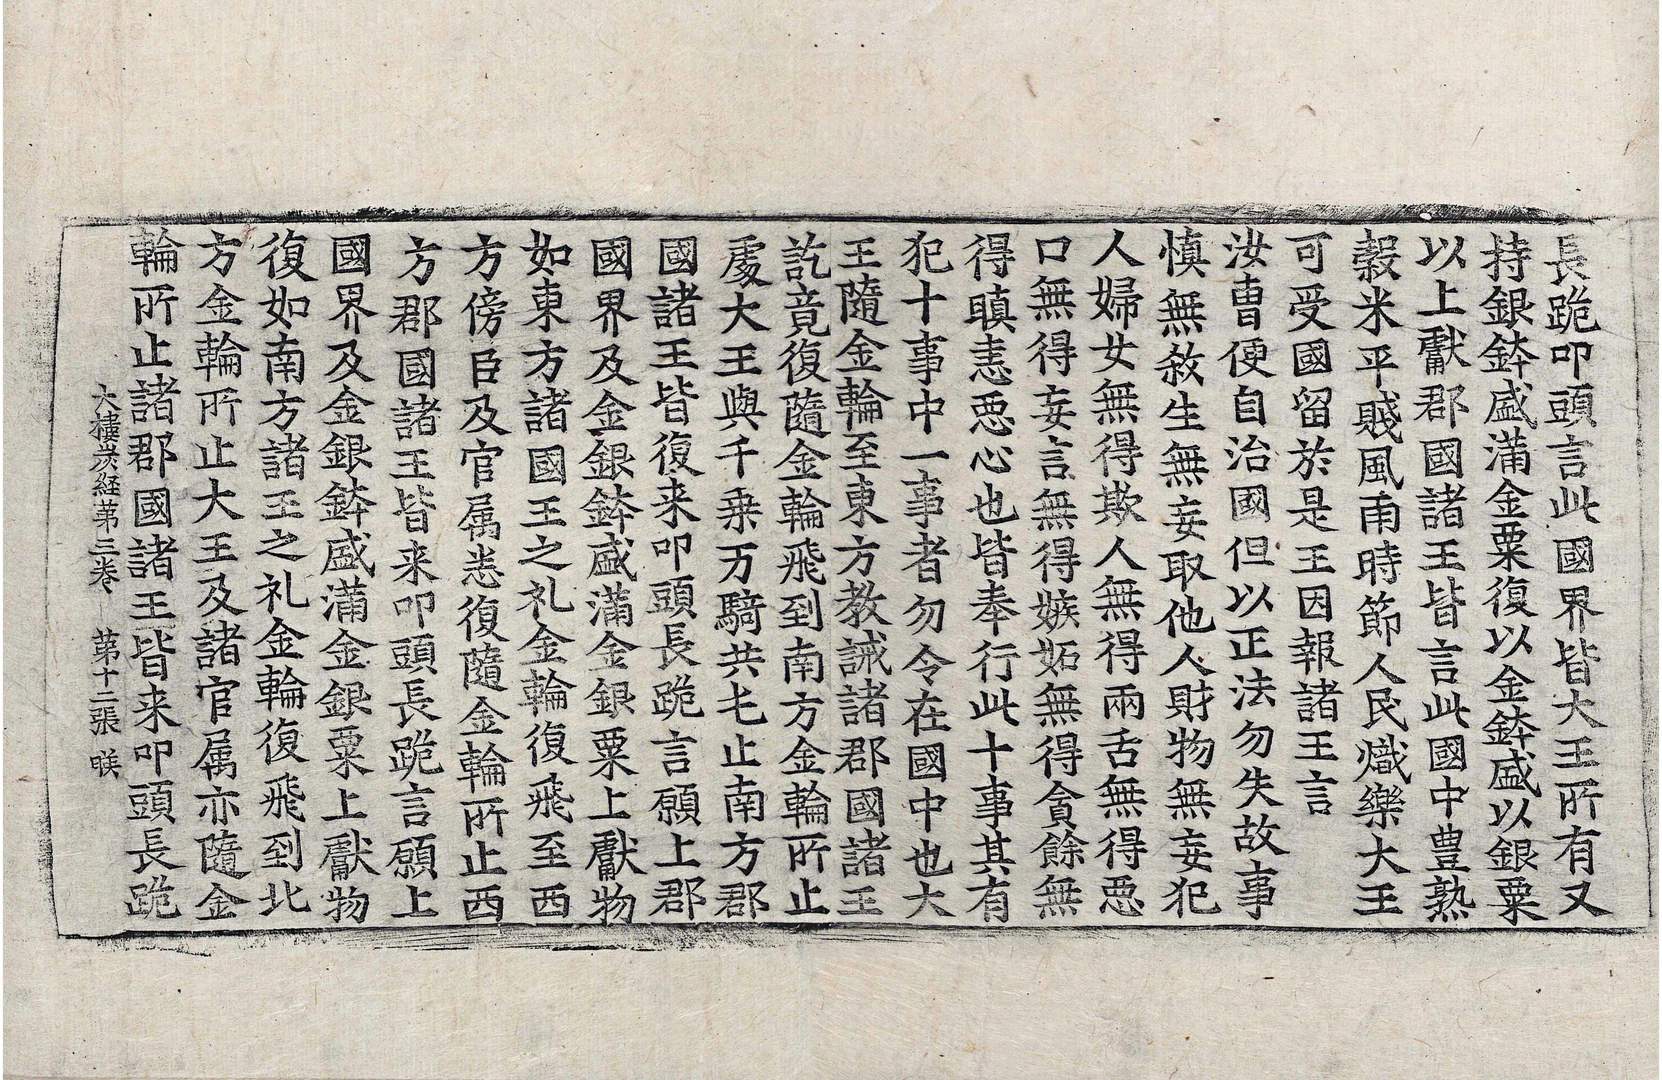 長跪叩頭言此國界皆大王所有又
持銀鉢盛滿金粟復以金鉢盛以銀粟
以上獻郡國諸王皆言此國中豊熟
榖米平賤風雨時節人民熾樂大王
可受國留於是王因報諸王言
汝曺便自治國但以正法勿失故事
慎無敎生無妄取他人財物無妄犯
人婦女無得欺人無得兩舌無得惡
口無得妄言無得嫉妬無得貪餘無
得瞋恚惡心也皆奉行此十事其有
犯十事中一事者勿令在國中也大
王隨金輪至東方教誡諸郡國諸王
訖竟復隨金輪飛到南方金輪所止
處大王與千乗万騎共七止南方郡
國諸王皆復来叩頭長跪言願上郡
國界及金銀鉢盛滿金銀粟上獻物
如東方諸國王之礼金輪復飛至西
方傍臣及官属悉復隨金輪所止西
方郡國諸王皆来叩頭長跪言願上
國界及金銀鉢盛滿金銀粟上獻物
復如南方諸王之礼金輪復飛到北
方金輪所止大王及諸官属亦隨金
輪所止諸郡國諸王皆来叩頭長跪
大樓炭経苐三卷 苐十二張 暎